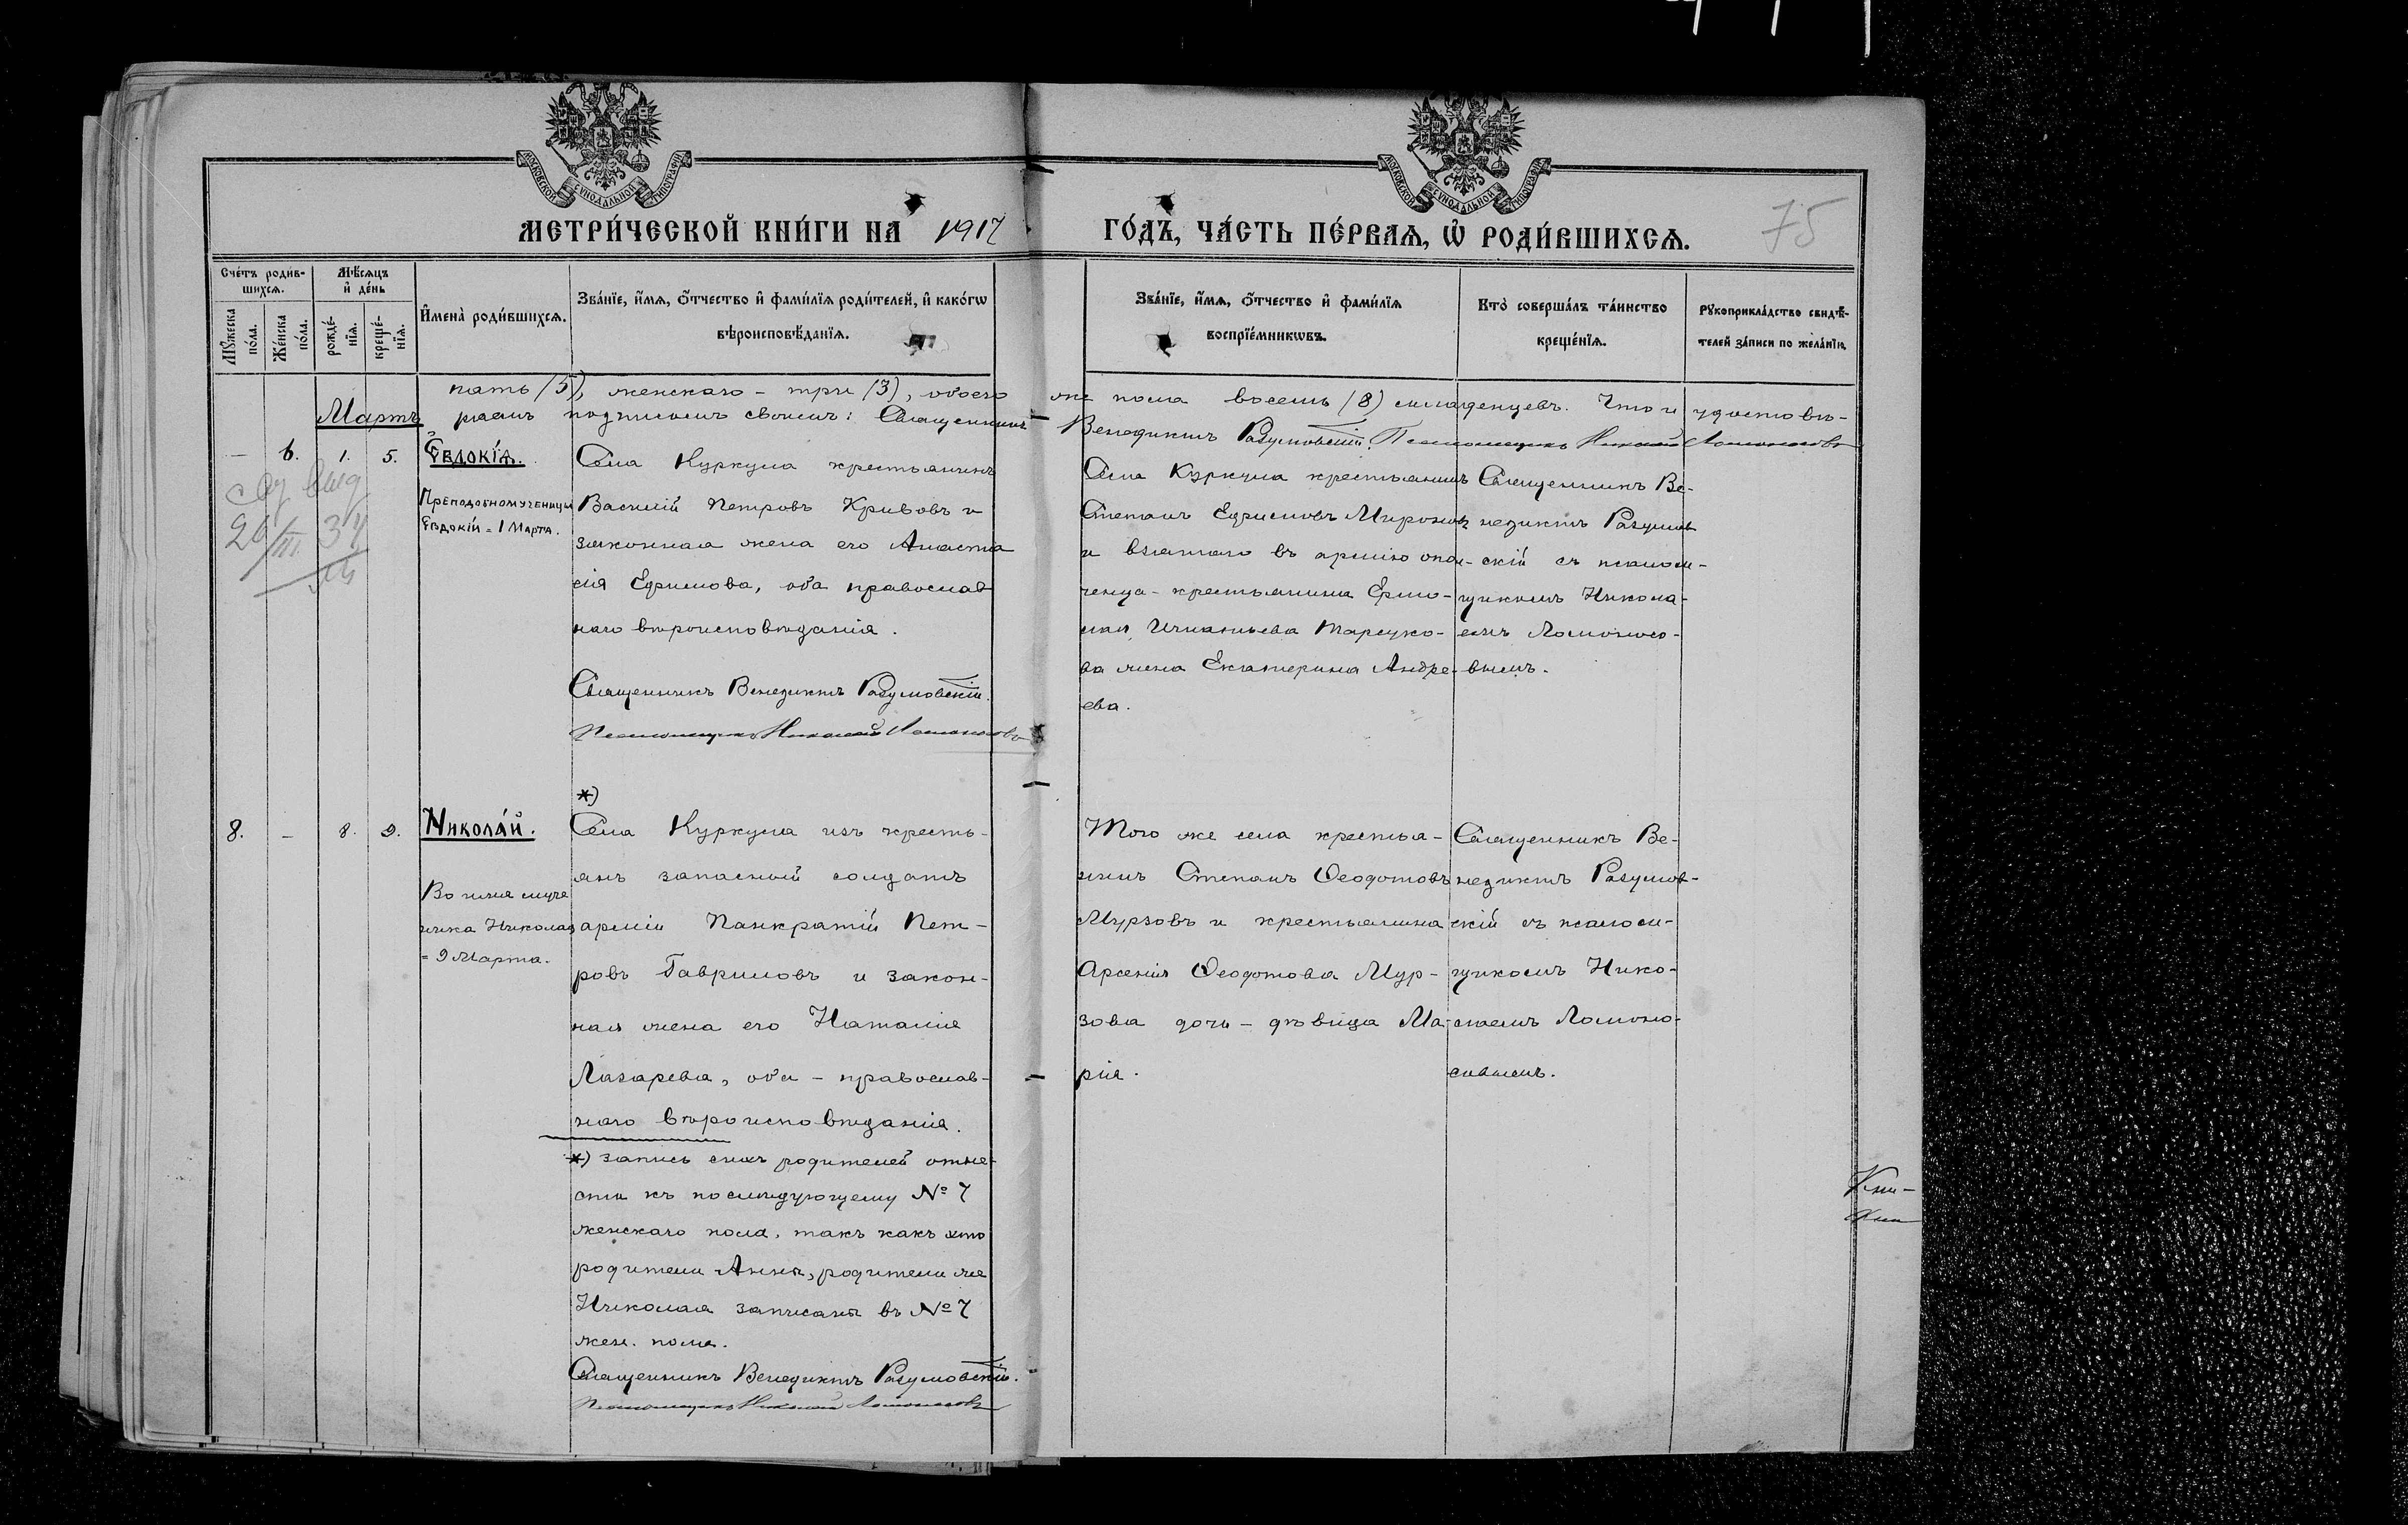 МОСКОВСКОЙ СѴНОДАЛЬНОЙ ТИПОГРАФІИ
МОСКОВСКОЙ СѴНОДАЛЬНОЙ ТИПОГРАФІИ
МЕТРИ́ЧЕСКОЙ КНИ́ГИ НА 1917 ГО́ДЪ, ЧА́СТЬ ПЕ́РВАѦ, Ѡ҆ РОДИ́ВШИХСѦ. 75
Сче́тъ роди́в-
шихсѧ.
Мѣ́сѧцъ
и҆ де́нь
Мꙋ́жеска
по́ла.
Же́нска
по́ла.
рожде́-
нїѧ.
креще́-
нїѧ.
И҆мена̀ роди́вшихсѧ.
Зва́нїе, и҆́мѧ, ѻ҆́тчество и҆ фами́лїѧ роди́телей, и҆ како́гѡ
вѣроисповѣ́данїѧ.
Зва́нїе, и҆́мѧ, ѻ҆́тчество и҆ фами́лїѧ
воспрїе́мникѡвъ.
Кто̀ соверша́лъ та́инство
креще́нїѧ.
Рꙋкоприкла́дство свидѣ́-
телей за́писи по жела́нїю.
пять (5), женскаго - три (3), обоего же пола восемь (8) младенцевъ. Что и удостовѣ-
Мартъ
ряемъ подписомъ своимъ: Священникъ Венедиктъ Разумовскій. Псаломщикъ Николай Ломоносовъ
— 6. 1. 5.
Евдокїѧ.
Преподобномученицы
Евдокіи = 1 Марта.
26/III 34
Села Куркула крестьянинъ
Василій Петровъ Кривовъ и
законная жена его Анаста
сія Ефимова, оба православ
наго вѣроисповѣданія.
Священникъ Венедиктъ Разумовскій.
Псаломщикъ Николай Ломоносовъ
Села Куркула крестьянинъ
Степанъ Ефимовъ Миронов
и взятаго въ армію опол-
ченца - крестьянина Ермо-
лая Игнатьева
ва жена Екатерина Андре-
ева.
Священникъ Ве-
недиктъ Разумов
скій съ псалом-
щикомъ Никола-
емъ Ломоносо-
вымъ.
8. — 8. 9.
Николáй.
Во имя муче
ника Николая
= 9 Марта.
*)
Села Куркула изъ кресть-
янъ запасный солдатъ
арміи Панкратій Пет-
ровъ Гавриловъ и закон-
ная жена его Наталія
Лазарева, оба - православ-
наго вѣроисповѣданія.
*) запись сихъ родителей отне-
сти къ послѣдующему № 7
женскаго пола, такъ какъ это
родители Анны, родители же
Николая записаны въ № 7
жен. пола.
Священникъ Венедиктъ Разумовскій.
Псаломщикъ Николай Ломоносовъ
Того же села крестья-
нинъ Степанъ Ѳеодотовъ
Мурзовъ и крестьянина
Арсенія Ѳеодотова Мур-
зова дочь - дѣвица Ма-
рія.
Священникъ Ве-
недиктъ Разумов-
скій съ псалом-
щикомъ Нико-
лаемъ Ломоно-
совымъ.